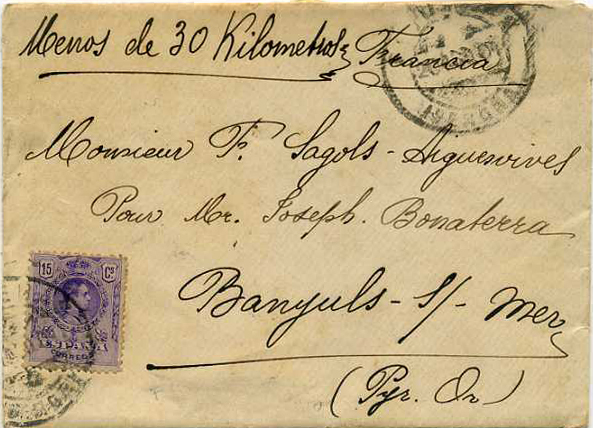 Menos de 30 Kilometros Francia
Monsieur F. Sagols - Aiguesvives
Pour Mr. Joseph. Bonaterra
15 Cs
CORREOS
Banyuls - s/ - Mer
(Pyr. Or)